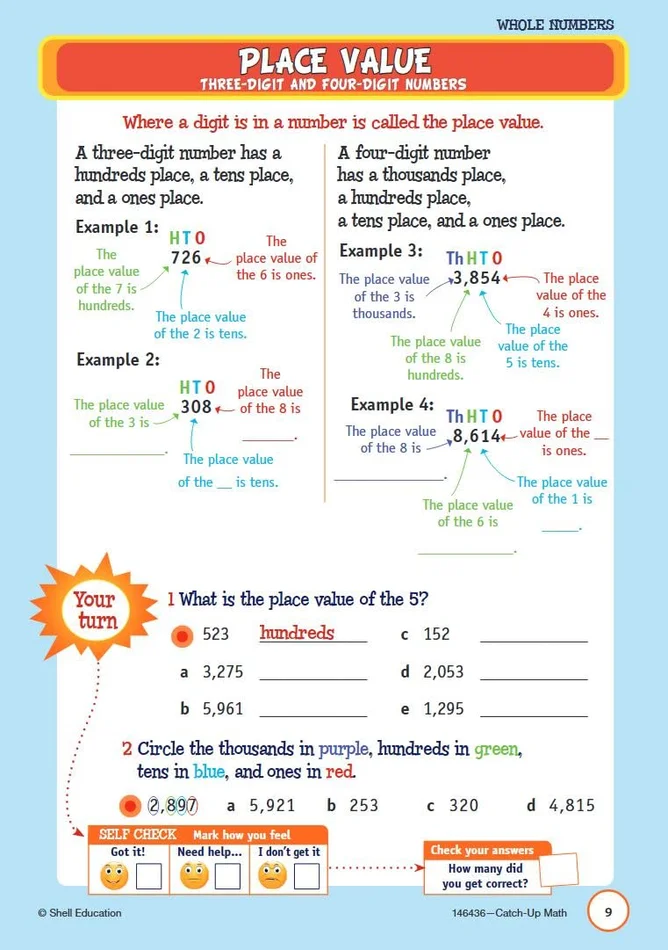 WHOLE NUMBERS
PLACE VALUE
THREE-DIGIT AND FOUR-DIGIT NUMBERS
Where a digit is in a number is called the place value.
A three-digit number has a
hundreds place, a tens place,
and a ones place.
Example 1:
H T O
726
The
place value
of the 7 is
hundreds.
The
place value of
the 6 is ones.
The place value
of the 2 is tens.
Example 2:
H T O
308
The place value
of the 3 is
____________.
The
place value
of the 8 is
_______.
The place value
of the __ is tens.
A four-digit number
has a thousands place,
a hundreds place,
a tens place, and a ones place.
Example 3:
Th H T O
3,854
The place value
of the 3 is
thousands.
The place value
of the 8 is
hundreds.
The place
value of the
5 is tens.
The place
value of the
4 is ones.
Example 4:
Th H T O
8,614
The place value
of the 8 is
______________.
The place value
of the 6 is
____________.
The place value
of the 1 is
_____.
The place
value of the __
is ones.
Your
turn
1 What is the place value of the 5?
523 hundreds
a 3,275 ______________
b 5,961 ______________
c 152 ______________
d 2,053 ______________
e 1,295 ______________
2 Circle the thousands in purple, hundreds in green,
tens in blue, and ones in red.
2,897 a 5,921 b 253 c 320 d 4,815
SELF CHECK Mark how you feel
Got it! Need help... I don't get it
Check your answers
How many did
you get correct?
© Shell Education 146436—Catch-Up Math 9